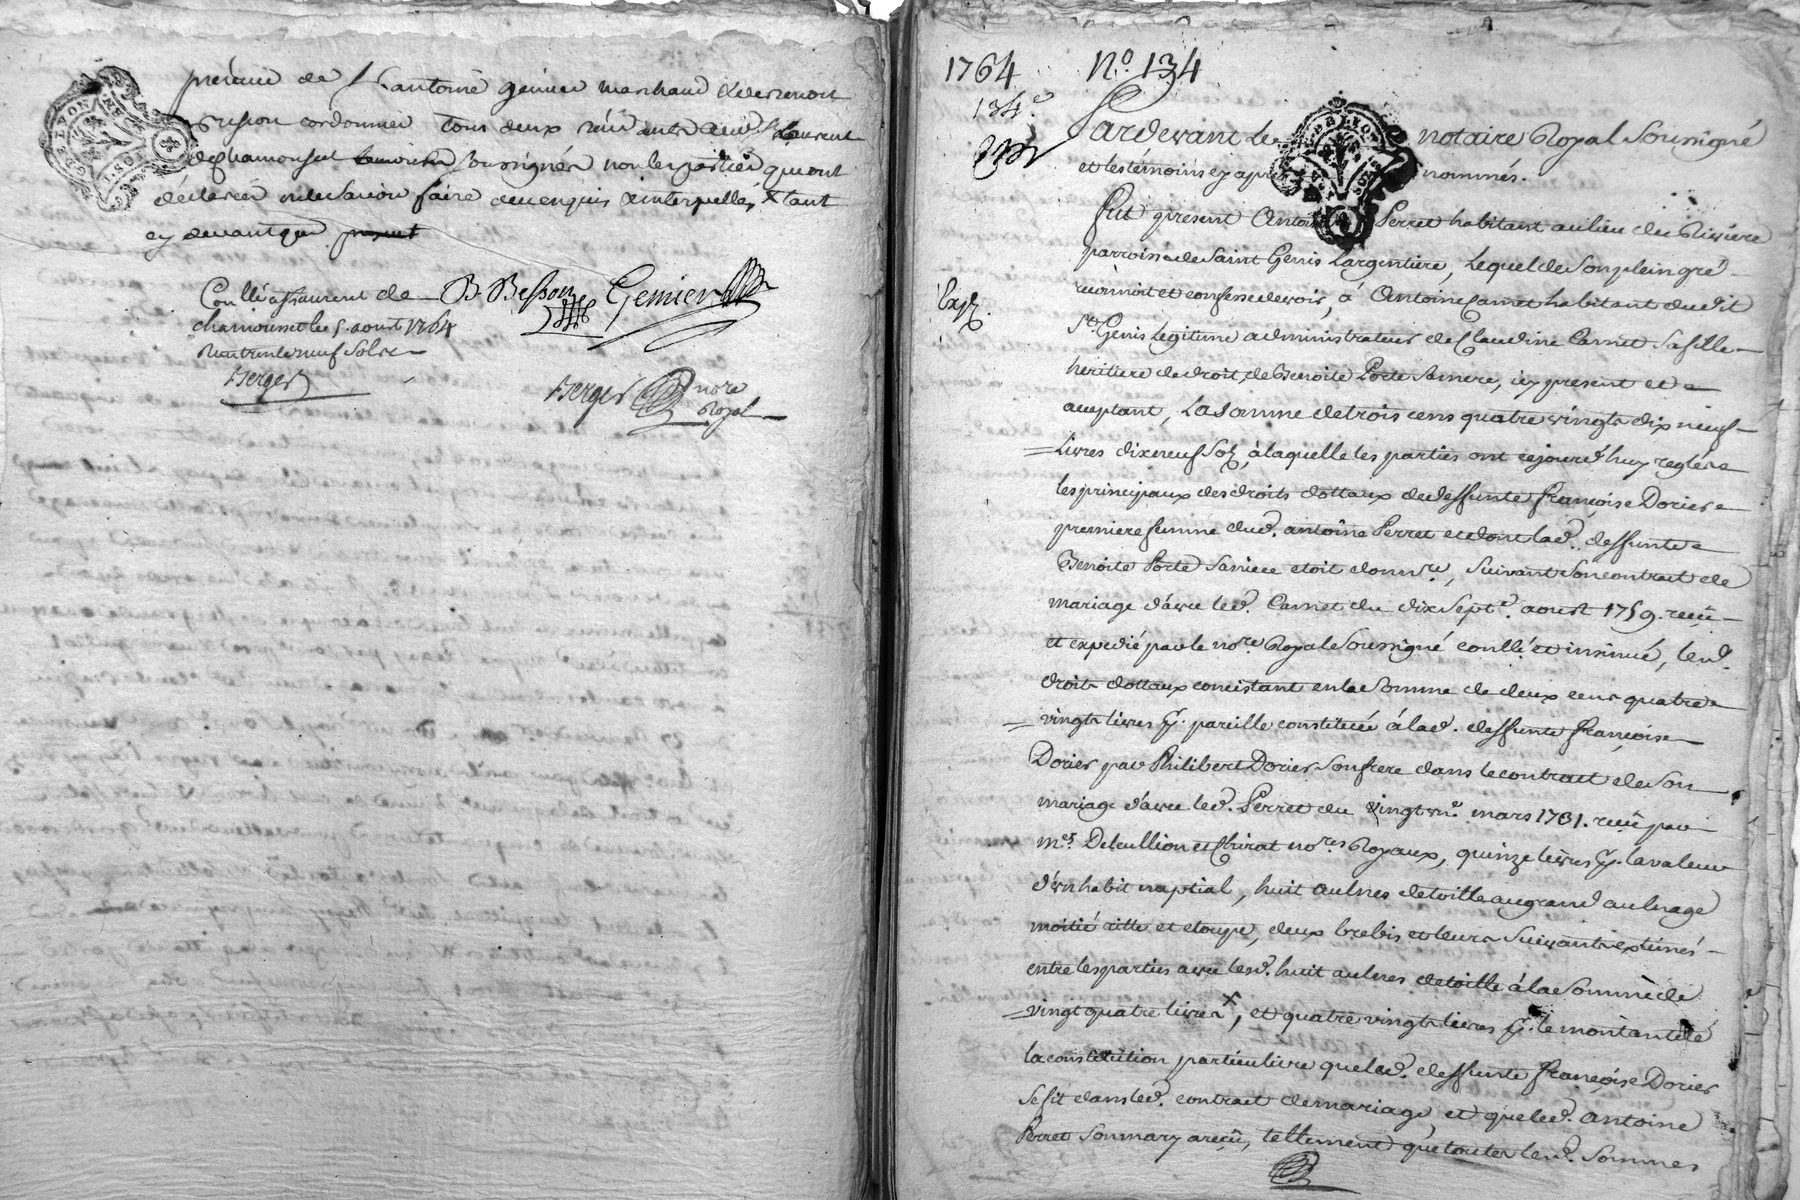 presence de Sr antoine génier marchand & de benoit
besson cordonnier tous deux résidants aud. St Laurent
de chamousset soussignés non les parties qui ont
déclaré ne le savoir faire de ce enquis & interpellés, & tant
cy devant que
B Besson Genier
Conllé a St Laurent de
chamousset le 5. aoust 1764
Reçu trente neuf sols
Berger
Berger nore
Royal
1764 No. 134
134e
Pardevant le notaire Royal Soussigné
et les témoins cy après nommés.
Fut présent Antoine Perret habitant au lieu du Rivière
parroisse de Saint Genis Largentiere, Lequel de son plein gré
Exp.
reconnoit et confesse devoir, à Antoine Carret habitant dudit
St. Genis legitime administrateur de Claudine Carret sa fille
héritiere de droit de Benoite Porte sa mere, icy présent et
acceptant, La somme de trois cens quatre vingts dix neuf
Livres dix neuf Sols, à laquelle les parties ont cejourd'huy reglés
les principaux des droits dottaux de deffunte françoise Dorier
premiere femme dud. antoine Perret et dont lad. deffunte
Benoite Porte sa niece étoit donnre, suivant son contrat de
mariage d'avec led. Carret du dix sept. aoust 1759. reçu
et expedié par le nore Royal Soussigné conllé et insinué, lesd.
droits dottaux concistant en la somme de deux cens quatre
vingts livres pareille constituée à lad. deffunte françoise
Dorier par Philibert Dorier son frere dans le contrat de son
mariage d'avec led. Perret du vingt un. mars 1731. reçu par
mes. Deleullion et Chirat nores Royaux, quinze livres la valeur
d'un habit nuptial, huit aulnes de toille au grand aulnage
moitié ritte et etoupe, deux brebis et leurs suivants extimés
entre les parties avec lesd. huit aulnes de toille à la somme de
vingt quatre livres x, et quatre vingts livres le montant de
la constitution particuliere que lad. deffunte françoise Dorier
se fit dans led. contrat de mariage, et que led. antoine
Perret son mary a reçu, tellement que toutes lesd. sommes